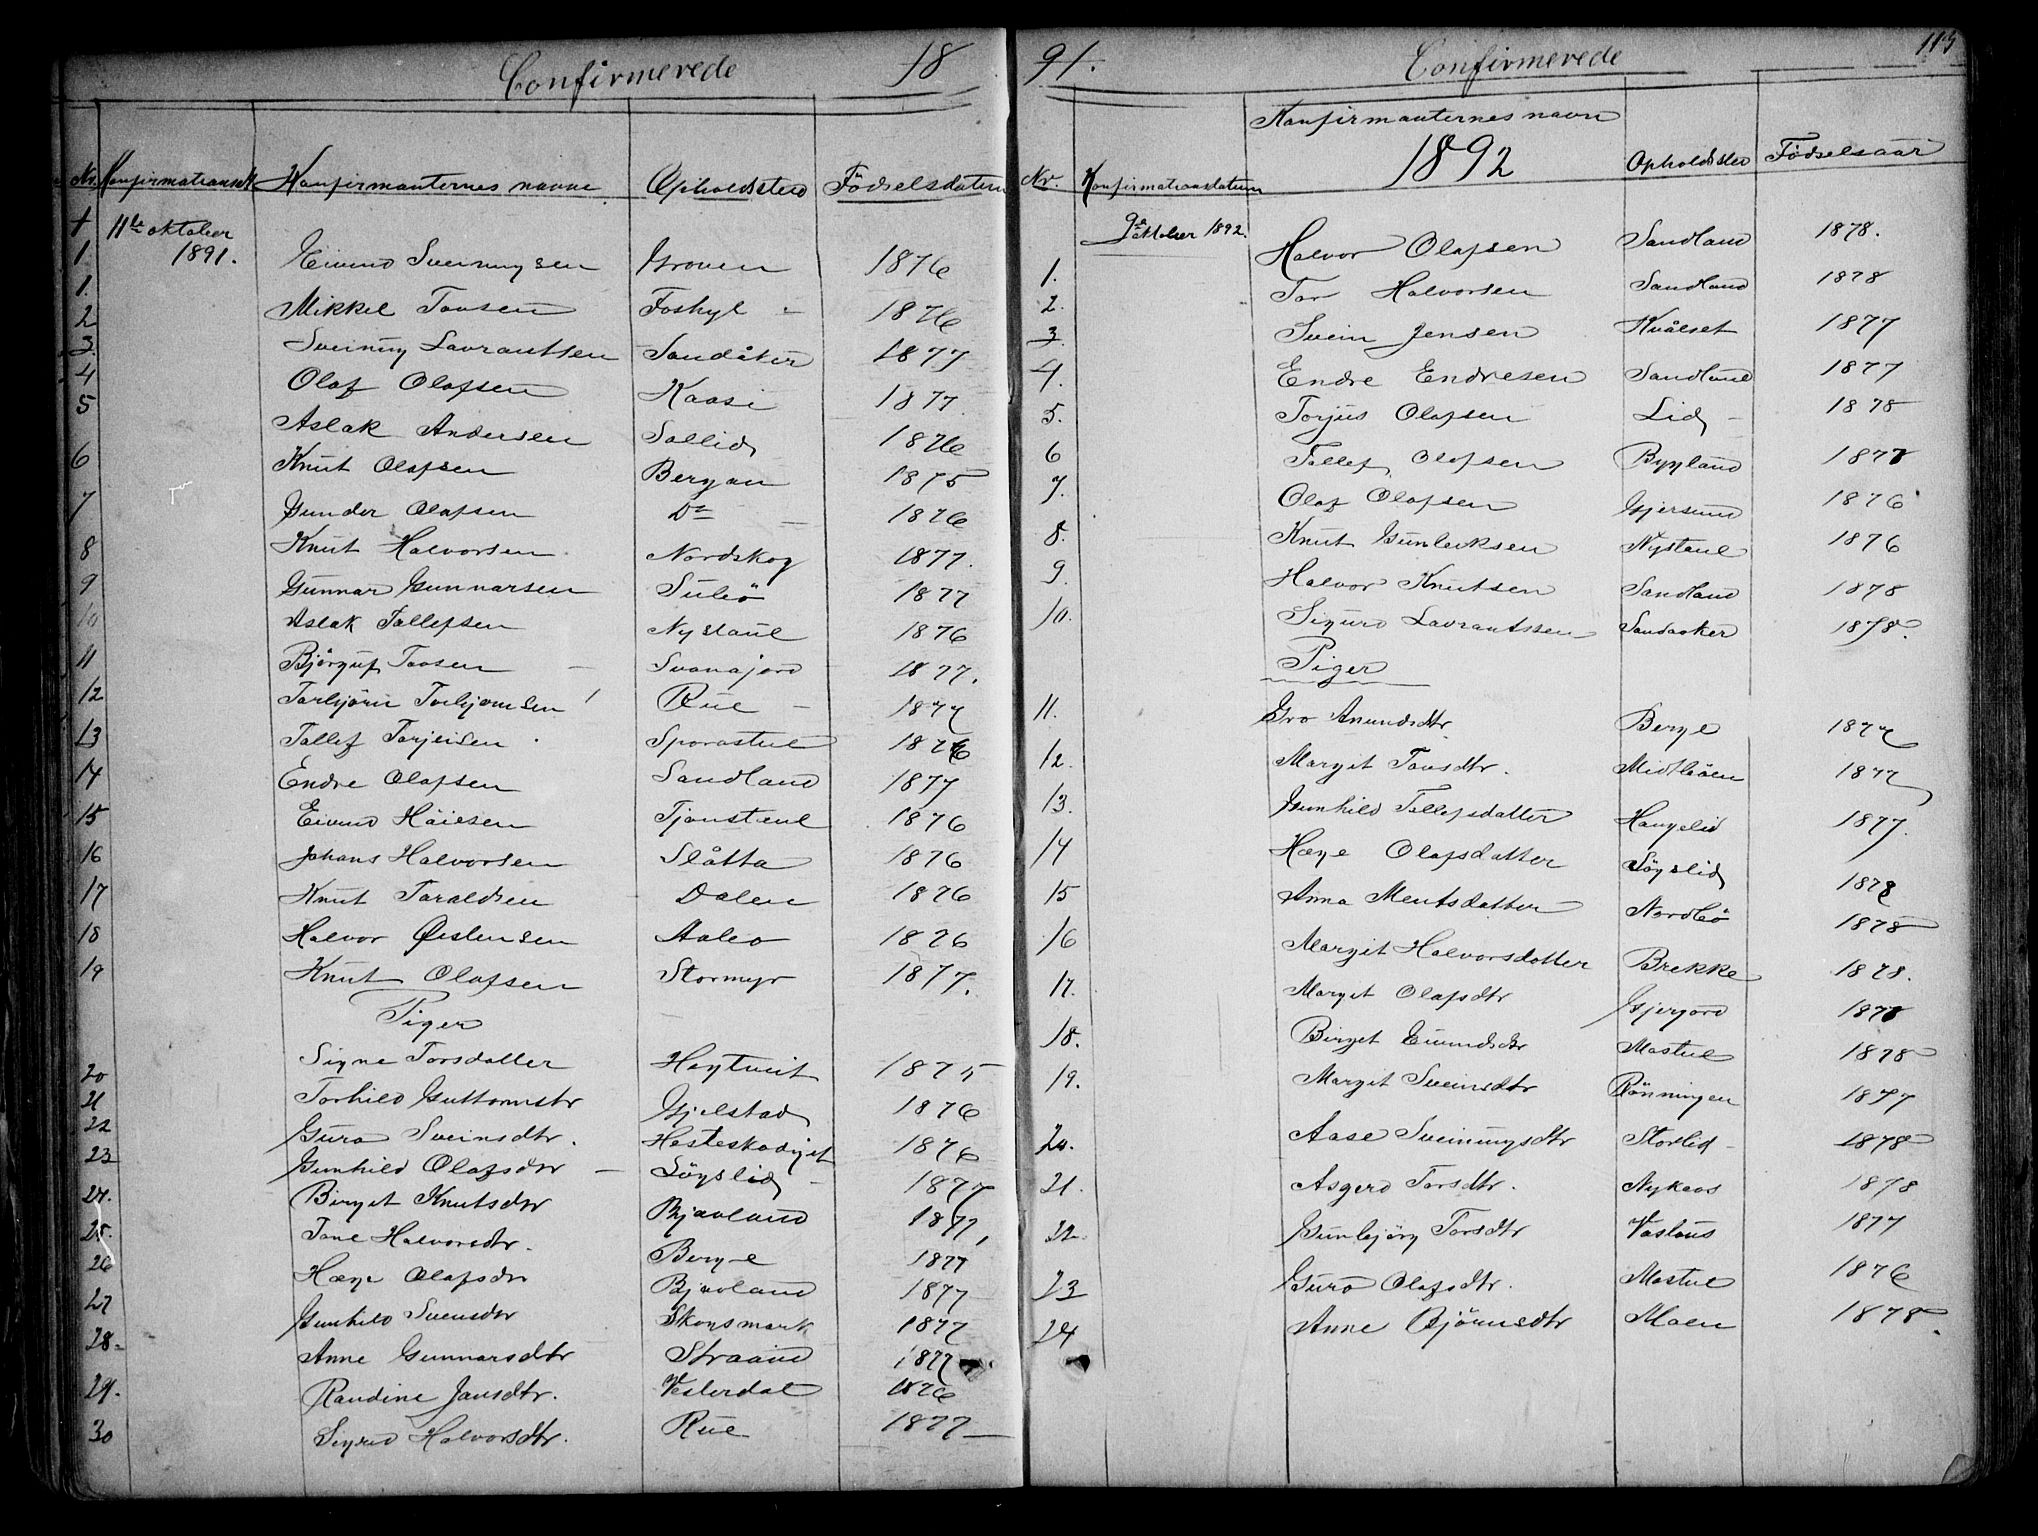 Confirmerede 18
Nr. Konfirmationsdt. Konfirmanternes navne Opholdsted Fødselsdatum
1 11te oktober
1. 1891. Eivind Sveinungsen Groven 1876
1. Mikkel Tovsen Foskyl 1876
2 Sveinung Lavrantsen Sandåker 1877
3. Olaf Olafsen Kaasi 1877
4 Aslak Andersen Sollid 1876
5 Knut Olafsen Bergan 1875
6 Gunder Olafsen Do 1876
7 Knut Halvorsen Nordskog 1877.
8 Gunnar Gunnarsen Sulebö 1877
9 Aslak Tallefsen Nystaul 1876
10 Björguf Tovsen Svanajord 1877.
11 Torbjörn Torbjornsen Rue 1877
12 Tallef Torjeisen Sporastul 1876
13 Endre Olafsen Sandland 1877
14 Eivind Håiesen Tjonstaul 1876
15 Johans Halvorsen Slåtta 1876
16 Knut Taraldsen Dalen 1876
17 Halvor Østensen Aabø 1876
18 Knut Olafsen Stormyr 1877.
19
Piger
20 Signe Torsdatter Høgtveit 1875
21 Torhild Guttormsdtr Gjelstad 1876
22 Guro Sveinsdtr. Hesteskodiget 1876
23 Gunhild Olafsdtr Löyslid 1877
24. Birget Knutsdtr Bjaaland 1877,
25. Tone Halvorsdtr. Berge 1877
26 Hæge Olafsdtr Bjaaland 1877
27 Gunhild Svensdtr Skonsmark 1877
28. Anne Gunnarsdtr Straand 1877
29. Randine Jansdtr. Vesterdal 1876
30 Sigrid Halvorsdtr. Rue 1877
91. Confirmerede 113
Konfirmanternes navn
Nr. Konfirmationsdatum 1892 Opholdsted Fødselsaar
9de oktober 1892. Halvor Olafsen Sandland 1878.
1. Tor Halvorsen Sandland 1878
2. Svein Jensen Kvålset 1877
3. Endre Endresen Sandland 1877
4. Torjus Olafsen Lid 1878
5. Tallef Olafsen Bygland 1877
6 Olaf Olafsen Gjersund 1876
7. Knut Gunleiksen Nystaul 1876
8. Halvor Knutsen Sandland 1878
9. Sigurd Lavrantssen Sandaaker 1878.
10. Piger
11. Gro Anundsdtr. Berge 1877
12. Margit Tovsdtr. Midtböen 1877
13. Gunhild Tallefsdatter Haugelid 1877.
14 Hæge Olafsdatter Löyslid 1878
15 Anna Mentsdatter Nordbö 1878
16 Margit Halvorsdatter Brekke 1878.
17. Margit Olafsdtr Gjerjord 1878
18. Birget Eivindsdtr Mostul 1878
19. Margit Sveinsdtr Rönningen 1877
20. Aase Sveinungsdtr Storlid 1878
21. Asgerd Torsdtr. Nykaas 1878
22. Gunbjörg Torsdtr Vastaus 1877
23 Guro Olafsdtr. Mostul 1876
24 Anne Bjørnsdtr Moen 1878.